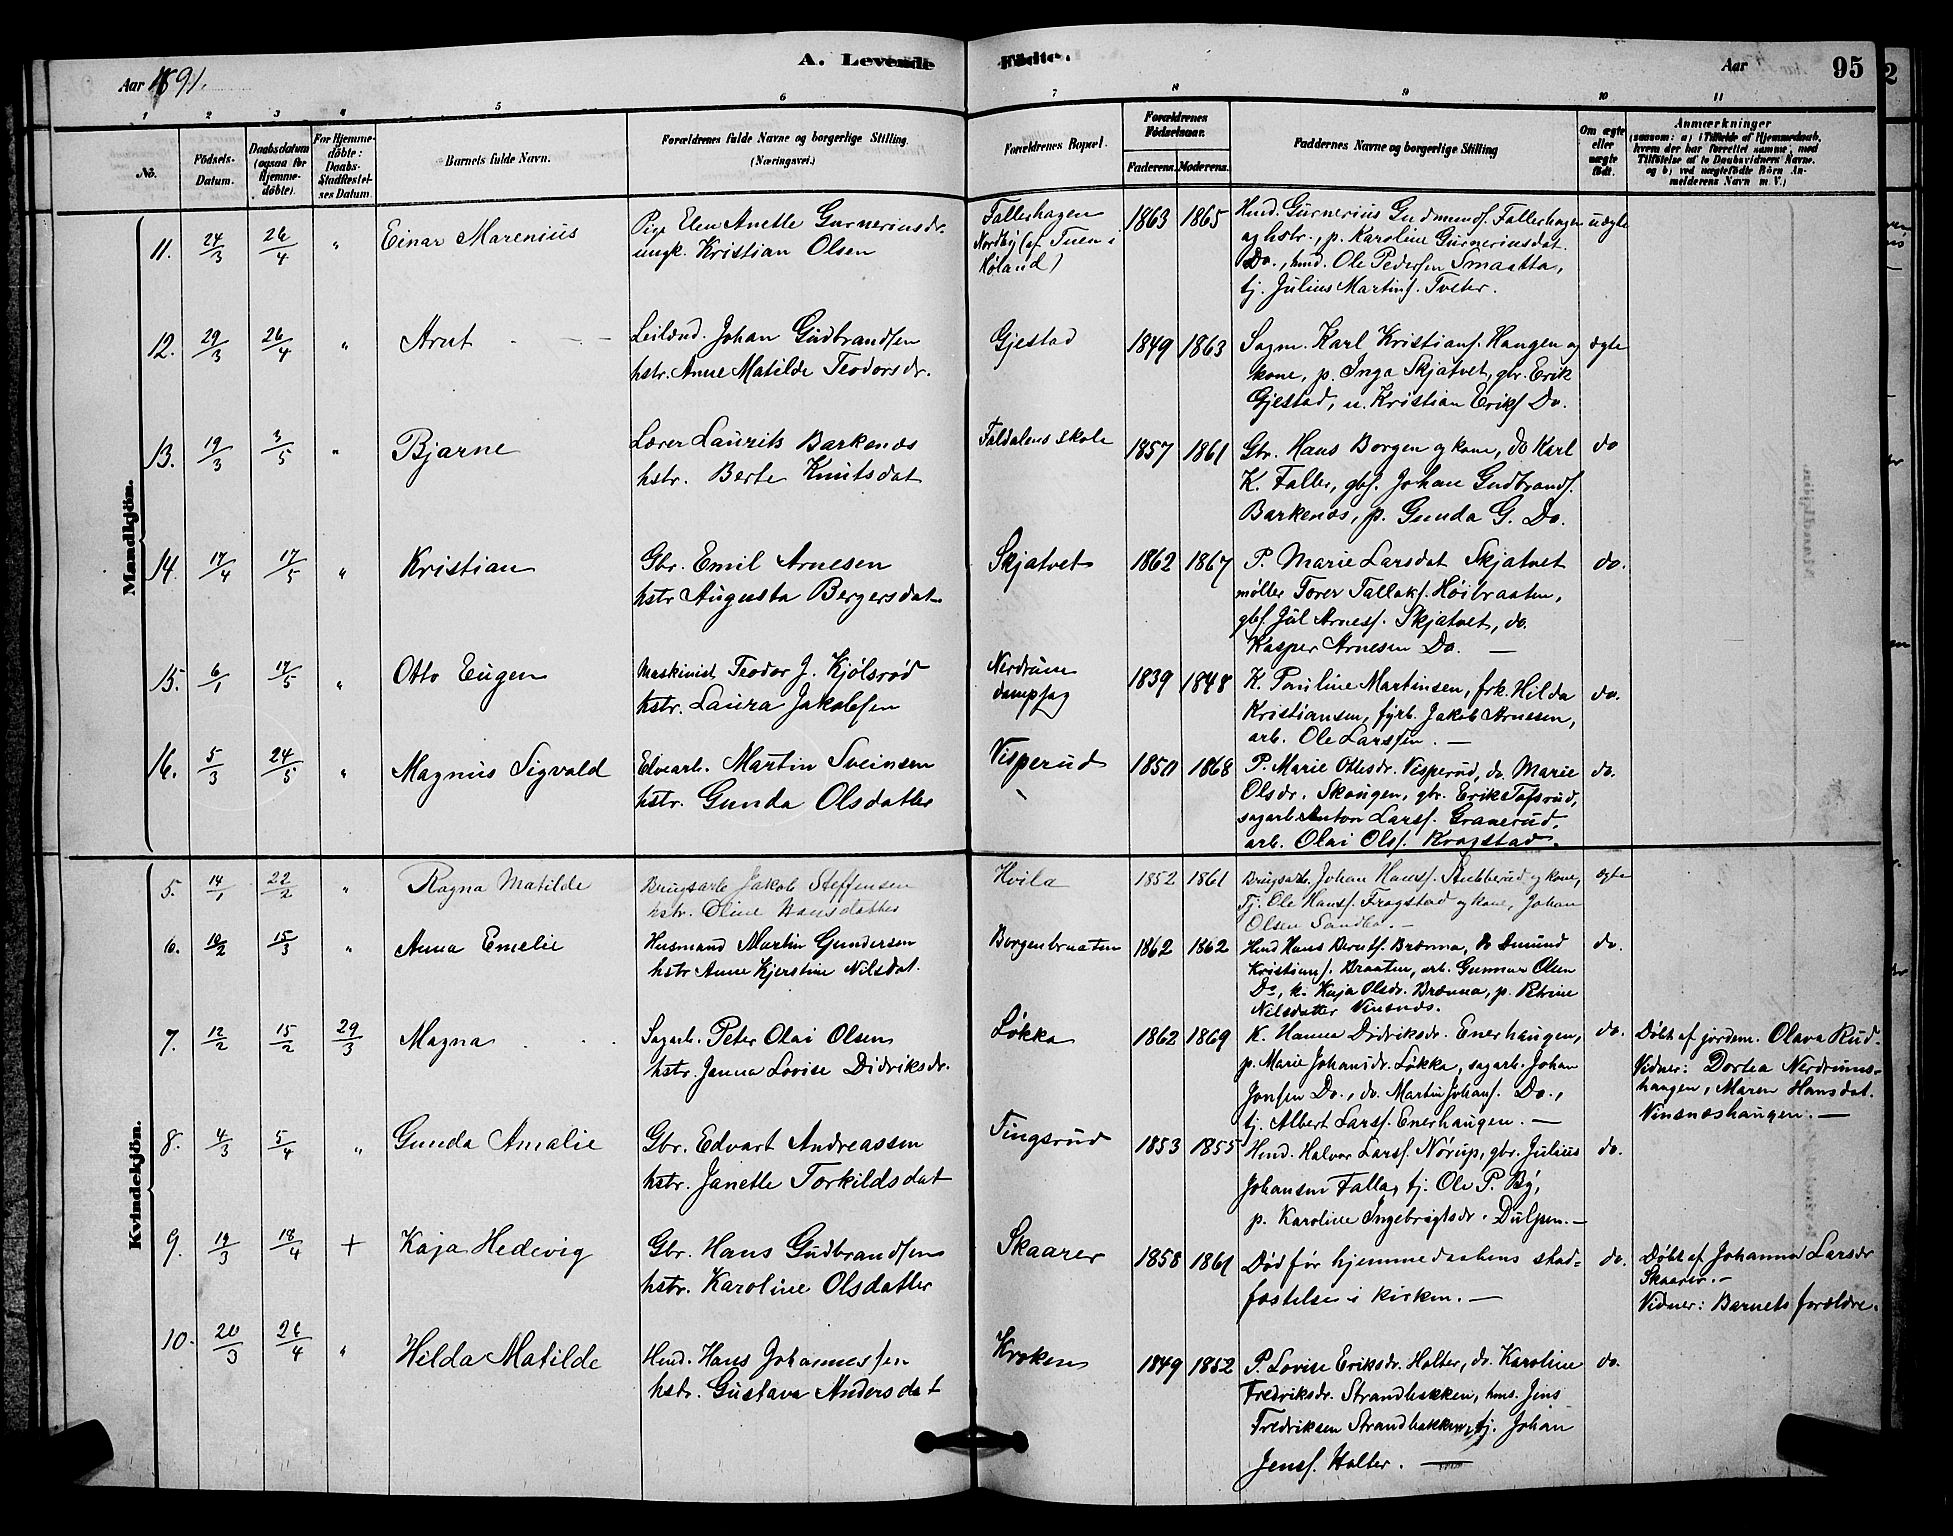 A. Levende Fødte.
Aar 1891.
Aar
95
1 2 3 4 5 6 7 8 9 10 11
No.
Födsels-Datum.
Daabsdatum (ogsaa for Hjemme-döbte).
For Hjemme-döbte: Daabs-Stadfæstel-ses Datum
Barnets fulde Navn.
Forældrenes fulde Navne og borgerlige Stilling. (Næringsvei.)
Forældrenes Bopæl.
Forældrenes Födselsaar.
Faderens. Moderens.
Faddernes Navne og borgerlige Stilling
Om ægte eller uægte födt.
Anmærkninger
(saasom: a) i Tilfælde af Hjemmedaab, hvem der har forrettet samme, med Tilföielse af to Daabsvidners Navne. og b) ved uægtefödte Börn An-melderens Navn m. V.)
Mandkjön.
11. 24/3 26/4 " Einar Marenius
Pige Elen Anette Gurneriusdr.
ungk. Kristian Olsen
Fallerhagen
Nordby (af Tuen i
Høland)
1863 1865
Hmd. Gurnerius Gudmunds. Fallerhagen uægte
og hstr., p. Karoline Gurneriusdat.
Do., hmd. Ole Pedersen Smaatta,
tj. Julius Martins. Tveter.
12. 29/3 26/4 " Arnt
Leilænd. Johan Gudbrandsen
hstr. Anne Matilde Teodorsdr.
Gjestad
1849 1863
Sagm. Karl Kristians. Haugen og ægte
kone, p. Inga Skjatvet, gbr. Erik
Gjestad, u. Kristian Eriks. Do.
13. 19/3 3/5 " Bjarne
Lærer Laurits Barkenæs
hstr. Berte Knutsdat
Faldalens skole
1857 1861
Gbr. Hans Borgen og kone, do Karl do
K. Faller, gbs. Johan Gudbrands.
Barkenæs, p. Gunda G. Do.
14. 17/4 17/5 " Kristian
Gbr. Emil Arnesen
hstr Augusta Bergersdat
Skjatvet
1862 1867
P. Marie Larsdat Skjatvet do.
møller Torer Tallaks. Høibraaten,
gbs. Jul Arness. Skjatvet, do.
Kasper Arnesen Do. —
15. 6/1 17/5 " Otto Eugen
Maskinist Teodor J. Kjølsrød
hstr. Laura Jakobsen
Nerdrum
dampsag
1839 1848
K. Pauline Martinsen, frk. Hilda do.
Kristiansen, fyrb. Jakob Arnesen,
arb. Ole Larssen. —
16. 5/3 24/5 " Magnus Sigvald
Elvearb. Martin Sveinsen
hstr. Gunda Olsdatter
Visperud
1850 1868
P. Marie Ottesdr. Visperud, do. Marie do.
Olsdr. Skaugen, gbr. Erik Tofsrud,
sagarb Anton Larss. Granerud,
arb. Olai Ols. Kragstad.
Kvindekjön.
5. 14/1 22/2 " Ragna Matilde
Brugsarb Jakob Steffensen
hstr. Oline Hansdatter
Hvila
1852 1861
Brugsarb. Johan Hans. Stubberud og kone, ægte
Tj. Ole Hans. Fragstad og kone, Johan
Olsen Sandbo. —
6. 10/2 15/3 " Anna Emelie
Husmand Martin Gundersen
hstr Anne Kjerstine Nilsdat.
Borgenbraaten
1862 1862
Hmd Hans Bernts. Brænna, do Amund do.
Kristians. Braaten, arb. Gunnar Olsen
Do, k. Kaja Olsdr. Brænna, p. Petrine
Nilsdatter Vinsnæs.
7. 12/2 15/2 29/3 Magna
Sagarb. Peter Olai Olsen
hstr. Janna Lovise Didriksdr.
Løkka
1862 1869
K. Hanna Didriksdr. Enerhaugen, do.
p. Marie Johansdr. Løkka, sagarb. Johan
Jonsen Do., do. Martin Johans. Do.,
tj. Albert Larss. Enerhaugen. —
Døbt af jordem. Olava Rud.
Vidner: Dortea Nerdrums-
haugen, Maren Hansdat.
Vinsnæshaugen. —
8. 4/3 5/4 " Gunda Amalie
Gbr. Edvart Andreassen
hstr. Janette Torkildsdat
Tingsrud
1853 1855
Hmd. Halvor Larss. Nørup, gbr. Julius do.
Johansen Falla, tj. Ole P. By,
p. Karoline Ingebrigtsdr. Dulpen. —
9. 19/3 18/4 + Kaja Hedevig
Gbr. Hans Gudbrandsen
hstr. Karoline Olsdatter
Skaarer
1858 1861
Død før hjemmedaabens stad- do.
fæstelse i kirken. —
Døbt af Johanna Larsdr
Skaarer. —
Vidner: Barnets forældre.
10. 20/3 26/4 " Hilda Matilde
Hmd. Hans Johannessen
hstr. Gustava Andersdat
Kroken
1849 1852
P. Lovise Eriksdr. Holter, do. Karoline do.
Fredriksdr. Strandbakken, hms. Jens
Fredriksen Strandbakken, tj. Johan
Jens. Holter. —